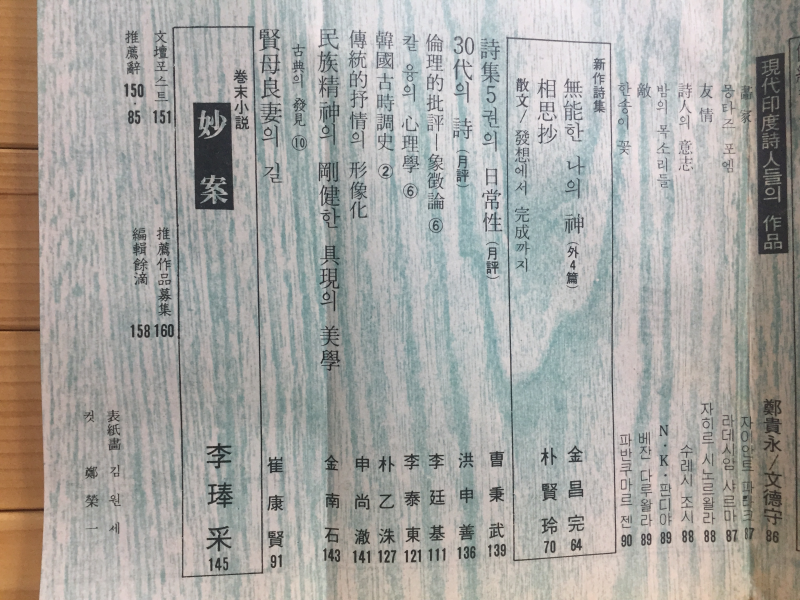 現代印度詩人들의 作品 鄭貴永/文德守 86
畵家 자이안트 파탁크 87
몽타즈 포엠 라데시암 샤르마 87
友情 자히르 시노르왈라 88
詩人의 意志 수레시 조시 88
밤의 목소리들 N·K·판디야 89
敵 베잔 다루왈라 89
한송이 꽃 파반쿠마르 젠 90
新作詩集
無能한 나의 神 (外4篇) 金昌完 64
相思抄 朴賢玲 70
散文/發想에서 完成까지
詩集5권의 日常性 (月評) 曹秉武 139
30代의 詩 (月評) 洪申善 136
倫理的批評―象徵論 ⑥ 李廷基 111
칼 융의 心理學 ⑥ 李泰東 121
韓國古時調史 ② 朴乙洙 127
傳統的抒情의 形像化 申尙澈 141
民族精神의 剛健한 具現의 美學 金南石 143
古典의 發見 ⑩
賢母良妻의 길 崔康賢 91
卷末小說
妙案 李琫采 145
文壇포스트 151
推薦辭 150·85
推薦作品募集 160
編輯餘滴 158
表紙畵 김원세
컷 鄭榮一